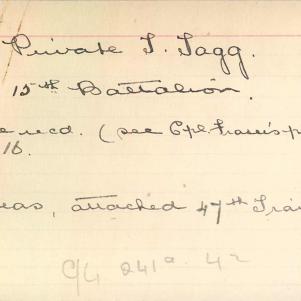 Private T. Tagg.
15th Battalion.
e recd. (see Cpl. Francis p
16.
eas, attached 47th Trai
C/L 241a. 42